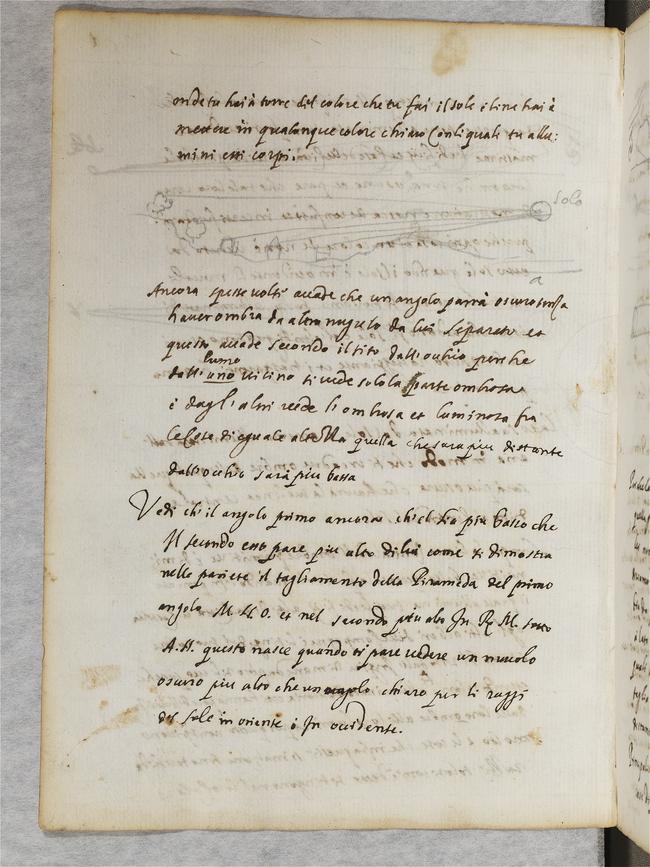 onde tu hai à torre del colore che tu fai il sole e li ne hai à
mettere in qualunque colore chiaro Con li quali tu allu:
mini essi corpi.
Solo
a
Ancora spesse volte acade che un angolo parrà oscuro senza
haver ombra da altro nugolo da lui separato et
questo acade secondo il sito dell'occhio perche
lumo
dall'uno vicino si vede solo la parte ombrosa
e dagl'altri vede l'ombrosa et luminosa fra
le cose di eguale altezza quella che sara piu distante
dall'occhio sarà piu bassa
Vedi ch'il angolo primo ancora ch'el sia piu basso che
Il secondo esso pare piu alto di lui come si dimostra
nelle pariete il tagliamento della Piramida del primo
angolo M. A. O. et nel secondo piu alto In R M. sotto
A. H. questo nasce quando ti pare vedere un nuvolo
oscuro piu alto che un nugolo chiaro per li raggi
del sole in oriente ò In occidente.